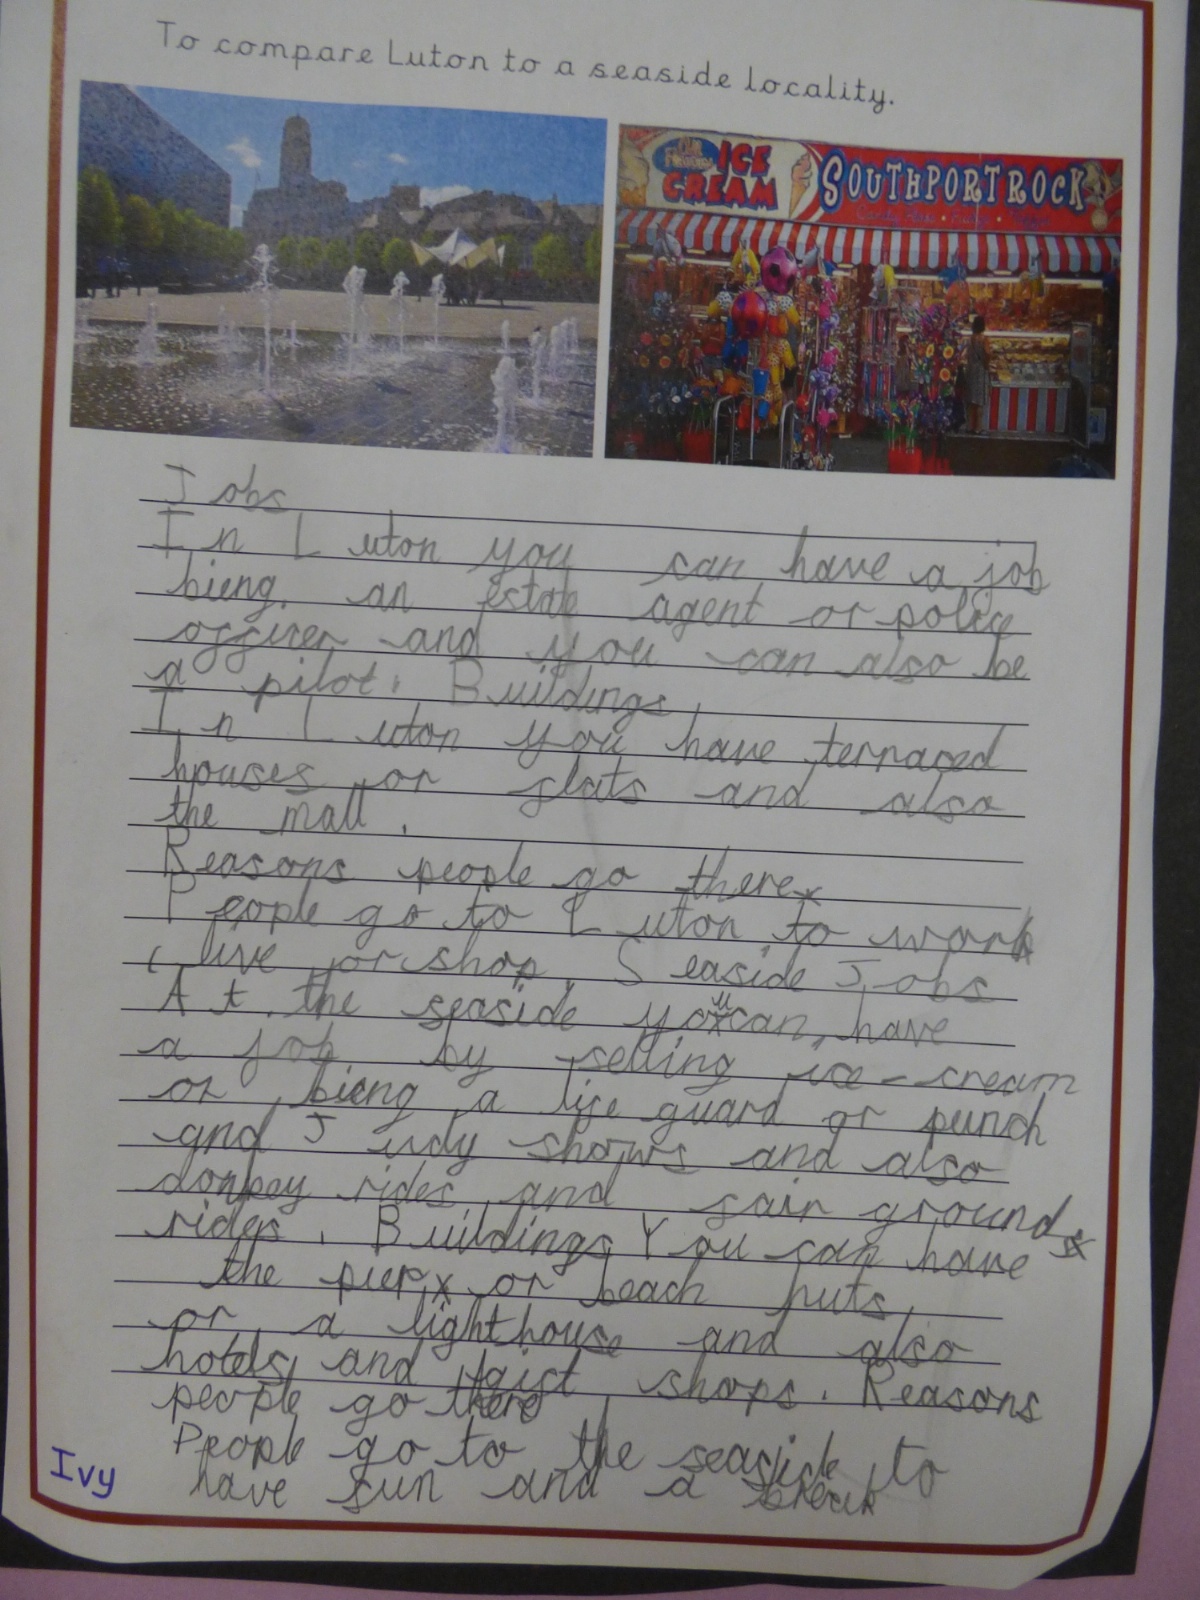 To compare Luton to a seaside locality.
ICE CREAM
SOUTHPORT ROCK
Jobs
In Luton you can have a job
bieng an estate agent or police
officer and you can also be
a pilot. Buildings
In Luton you have terraced
houses or flats and also
the mall.
Reasons people go there
People go to Luton to work
live or shop. Seaside Jobs
At the seaside you can have
a job by selling ice-cream
or bieng a life guard or punch
and Judy shows and also
donkey rides and fair grounds
rides. Buildings You can have
the pier or beach huts
or a lighthouse and also
hotels and gift shops. Reasons
people go there
People go to the seaside to
have sun and a break
Ivy